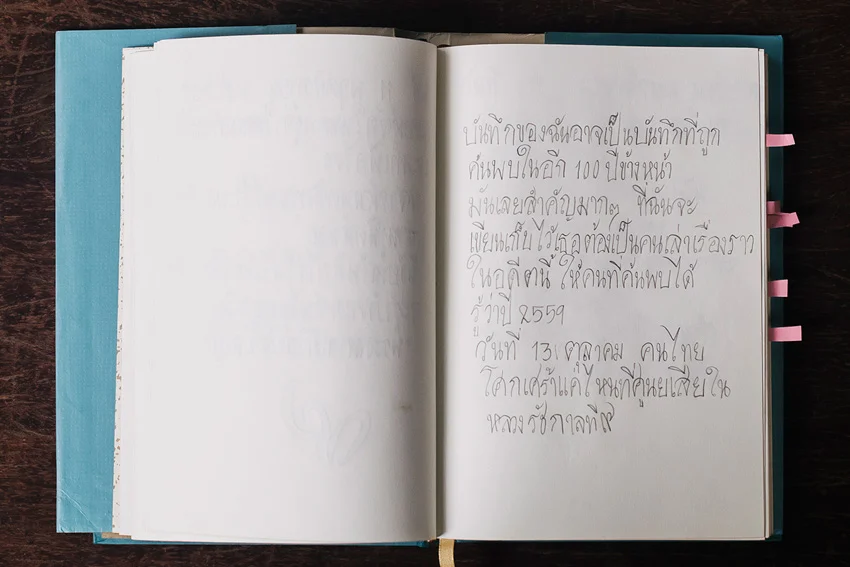 บันทึกของฉันอาจเป็นบันทึกที่ถูก
ค้นพบในอีก 100 ปีข้างหน้า
มันเลยสำคัญมากๆ ที่ฉันจะ
เขียนเก็บไว้เธอต้องเป็นคนเล่าเรื่องราว
ในอดีตนี้ ให้คนที่ค้นพบได้
รู้ว่าปี 2559
วันที่ 13 ตุลาคม คนไทย
โศกเศร้าแค่ไหนที่สูญเสียใน
หลวงรัชกาลที่ ๙